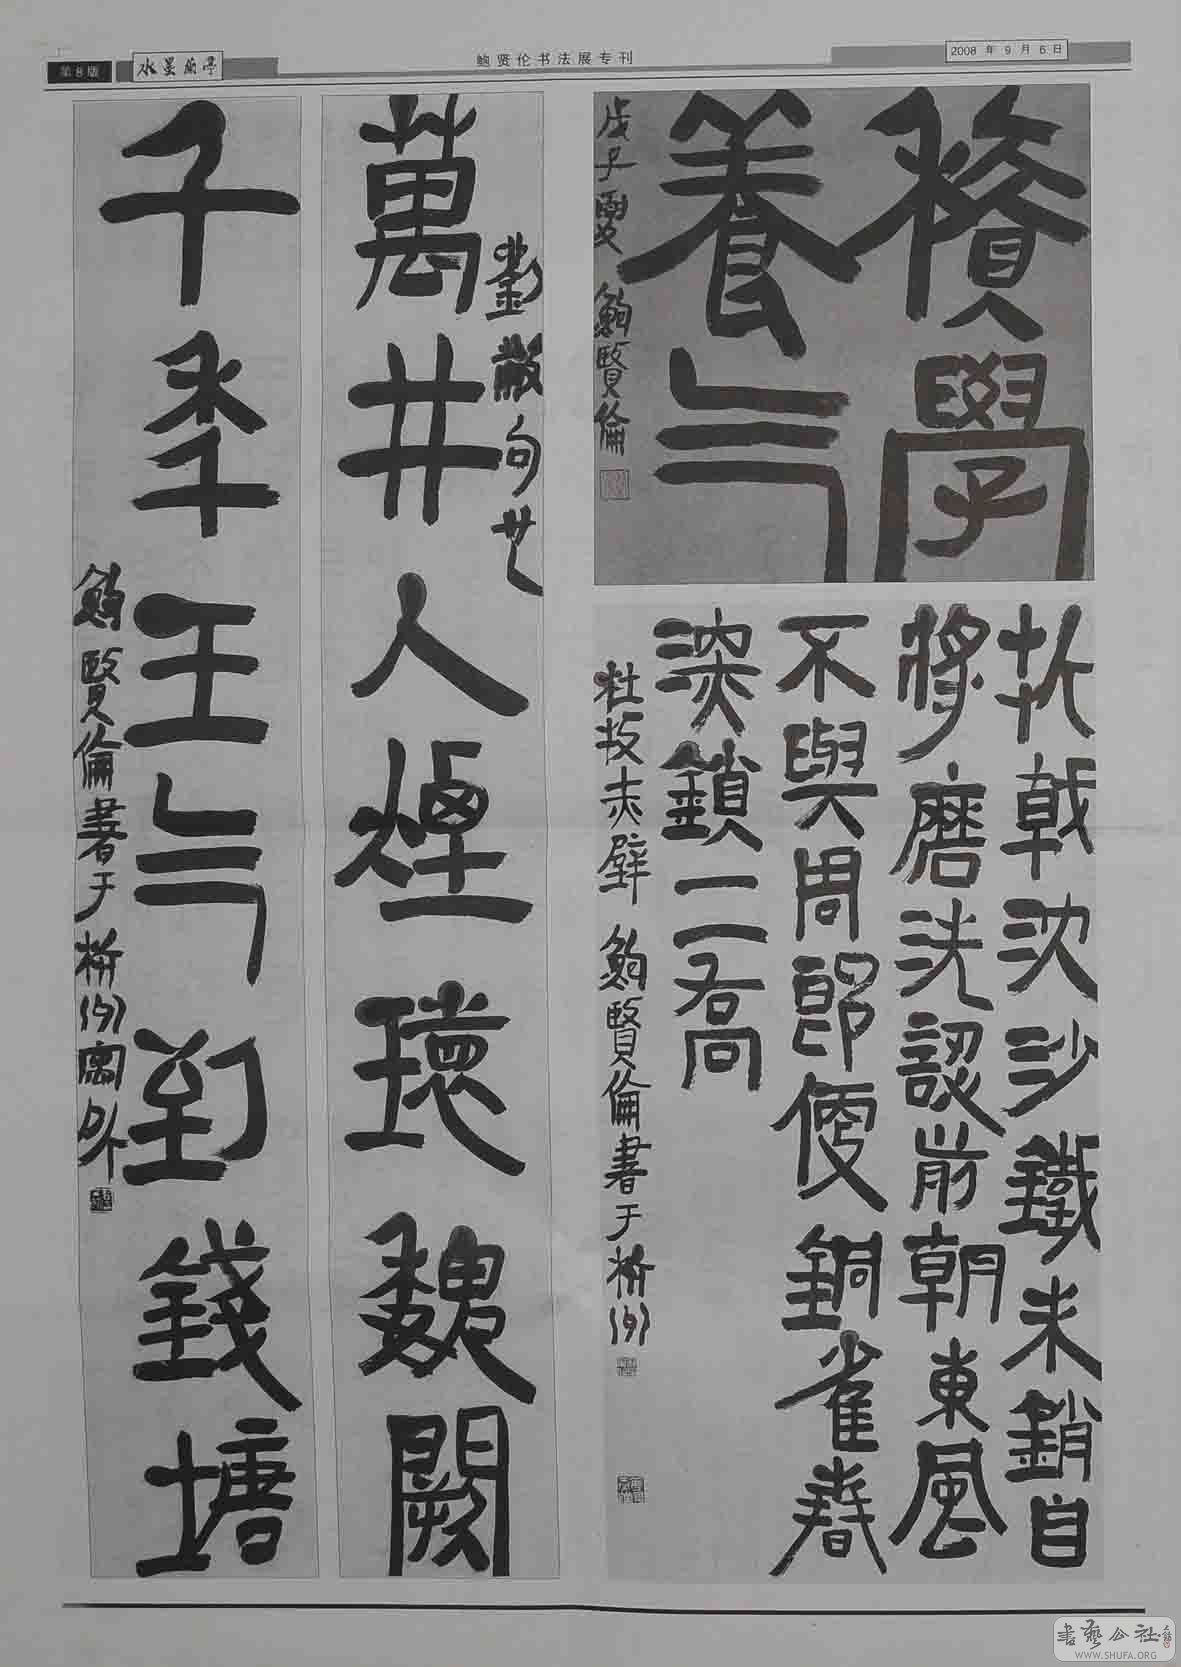 第8版
水墨蘭亭
鲍贤伦书法展专刊
2008 年 9 月 6 日
積學
養气
戊子夏 鮑賢倫
折戟沈沙鐵未銷自
將磨洗認前朝東風
不與周郎便銅雀春
深鎖二喬
杜牧赤壁 鮑賢倫書于梅
劉敞句也
萬井人煙環魏闕
千年王气到錢塘
鮑賢倫書于梅
書藝公社
WWW.SHUFA.ORG